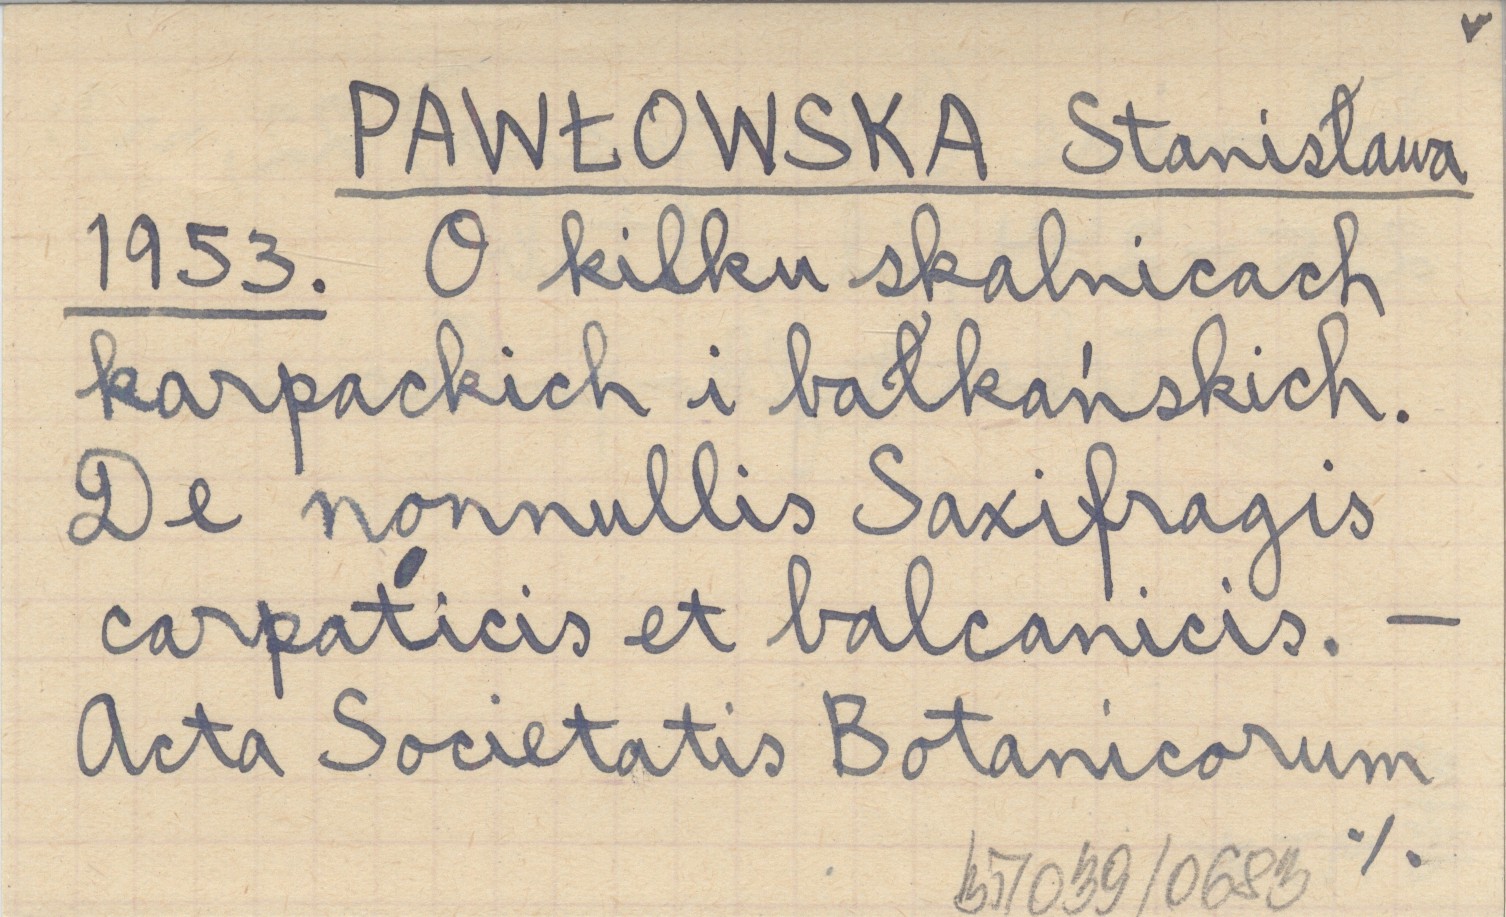 PAWŁOWSKA Stanisława
1953. O kilku skalnicach
karpackich i bałkańskich.
De nonnullis Saxifragis
carpaticis et balcanicis. —
Acta Societatis Botanicorum
·/.
/039/0683